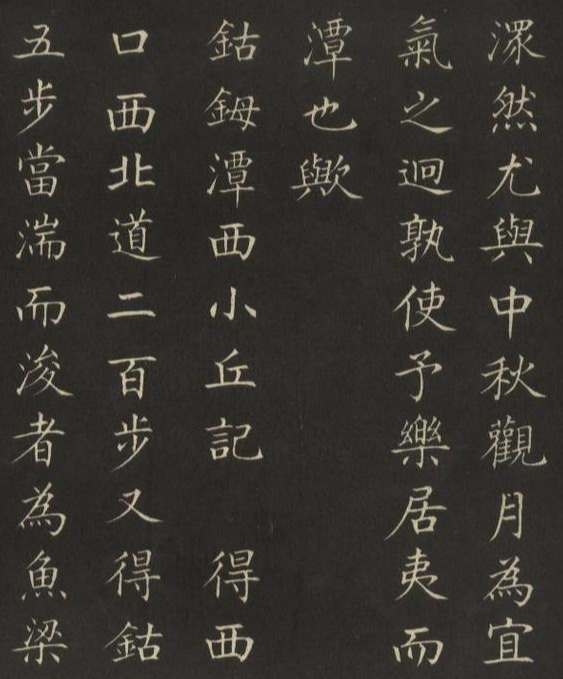 潀然尤與中秋觀月為宜
氣之迥孰使予樂居夷而
潭也歟
鈷鉧潭西小丘記 得西
口西北道二百步又得鈷
五步當湍而浚者為魚梁